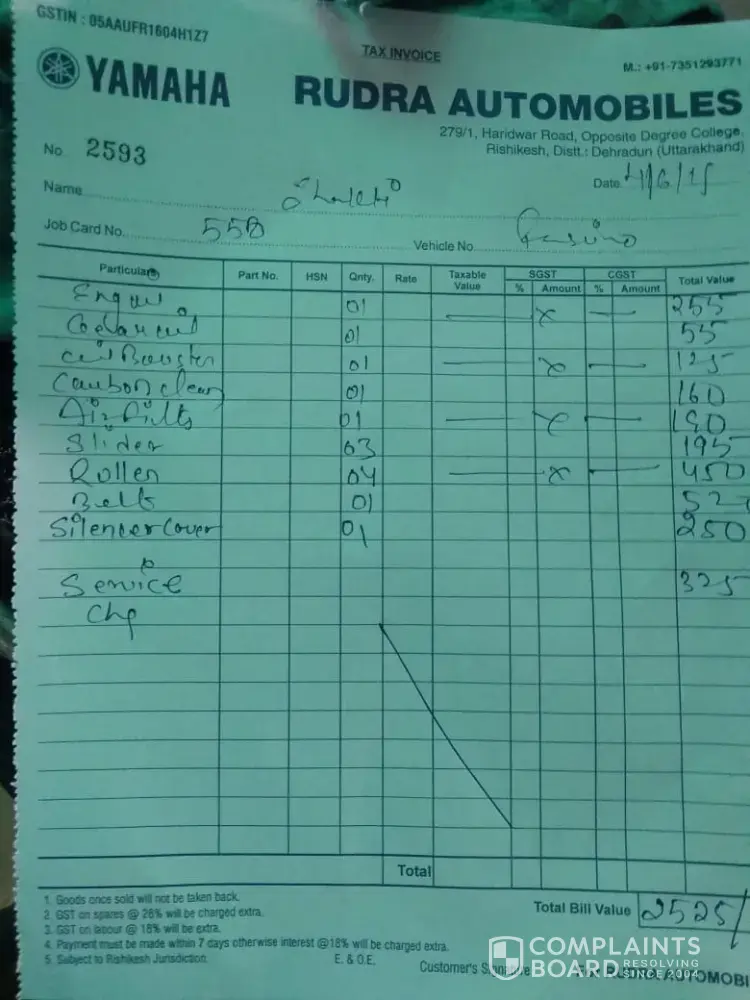 GSTIN : 05AAUFR1604H1Z7
TAX INVOICE
M.: +91-7351293771
YAMAHA RUDRA AUTOMOBILES
279/1, Haridwar Road, Opposite Degree College,
Rishikesh, Distt.: Dehradun (Uttarakhand)
No. 2593
Name Date
Job Card No. 558 Vehicle No.
Particulars Part No. HSN Qnty. Rate Taxable Value SGST % Amount CGST % Amount Total Value
01 255
01 55
oil Booster 01 125
Caubon clean 01 160
Air 01 190
Slider 03 195
Roller 04 450
Belt 01
Silencer Cover 01 250
Service 325
Chg
Total
1. Goods once sold will not be taken back.
2. GST on spares @ 28% will be charged extra.
3. GST on labour @ 18% will be extra.
4. Payment must be made within 7 days otherwise interest @18% will be charged extra.
5. Subject to Rishikesh Jurisdiction. E. & O.E.
Total Bill Value 2525/
Customer's RUDRA AUTOMOBI
COMPLAINTS
BOARD RESOLVING
SINCE 2004